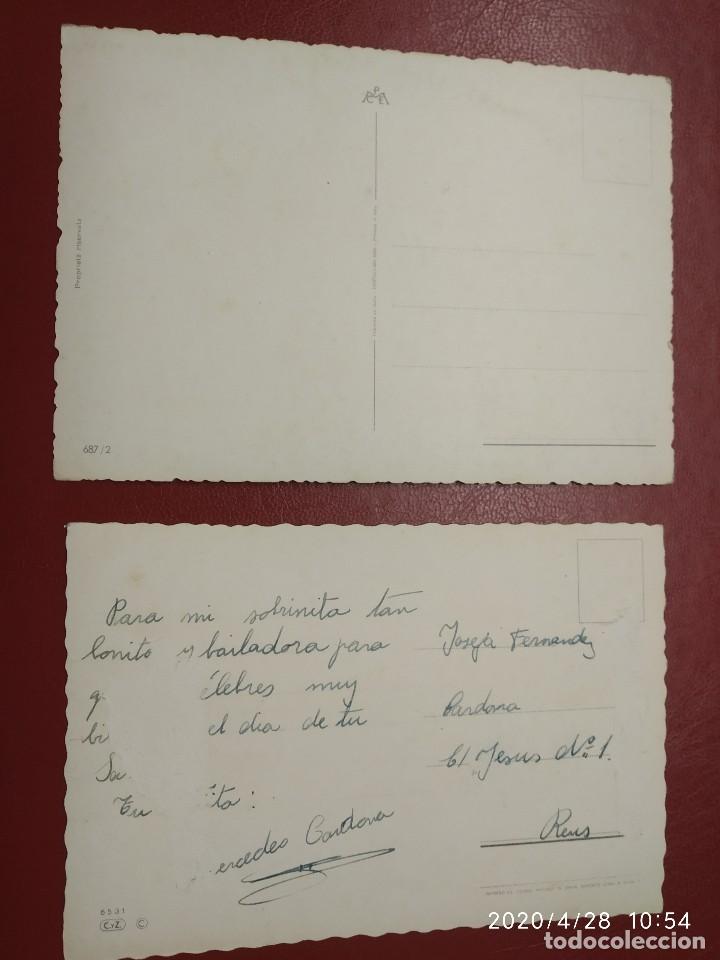 Proprietà riservata
687/2
Para mi sobrinita tan
bonita y bailadora para
q élebres muy
bi el dia de tu
Sa
Tu ita:
ercedes Cardona
Josefa Fernandez
Cardona
C/ Jesus Nº 1.
Reus
6531
C.yZ. ©
2020/4/28 10:54
todocoleccion